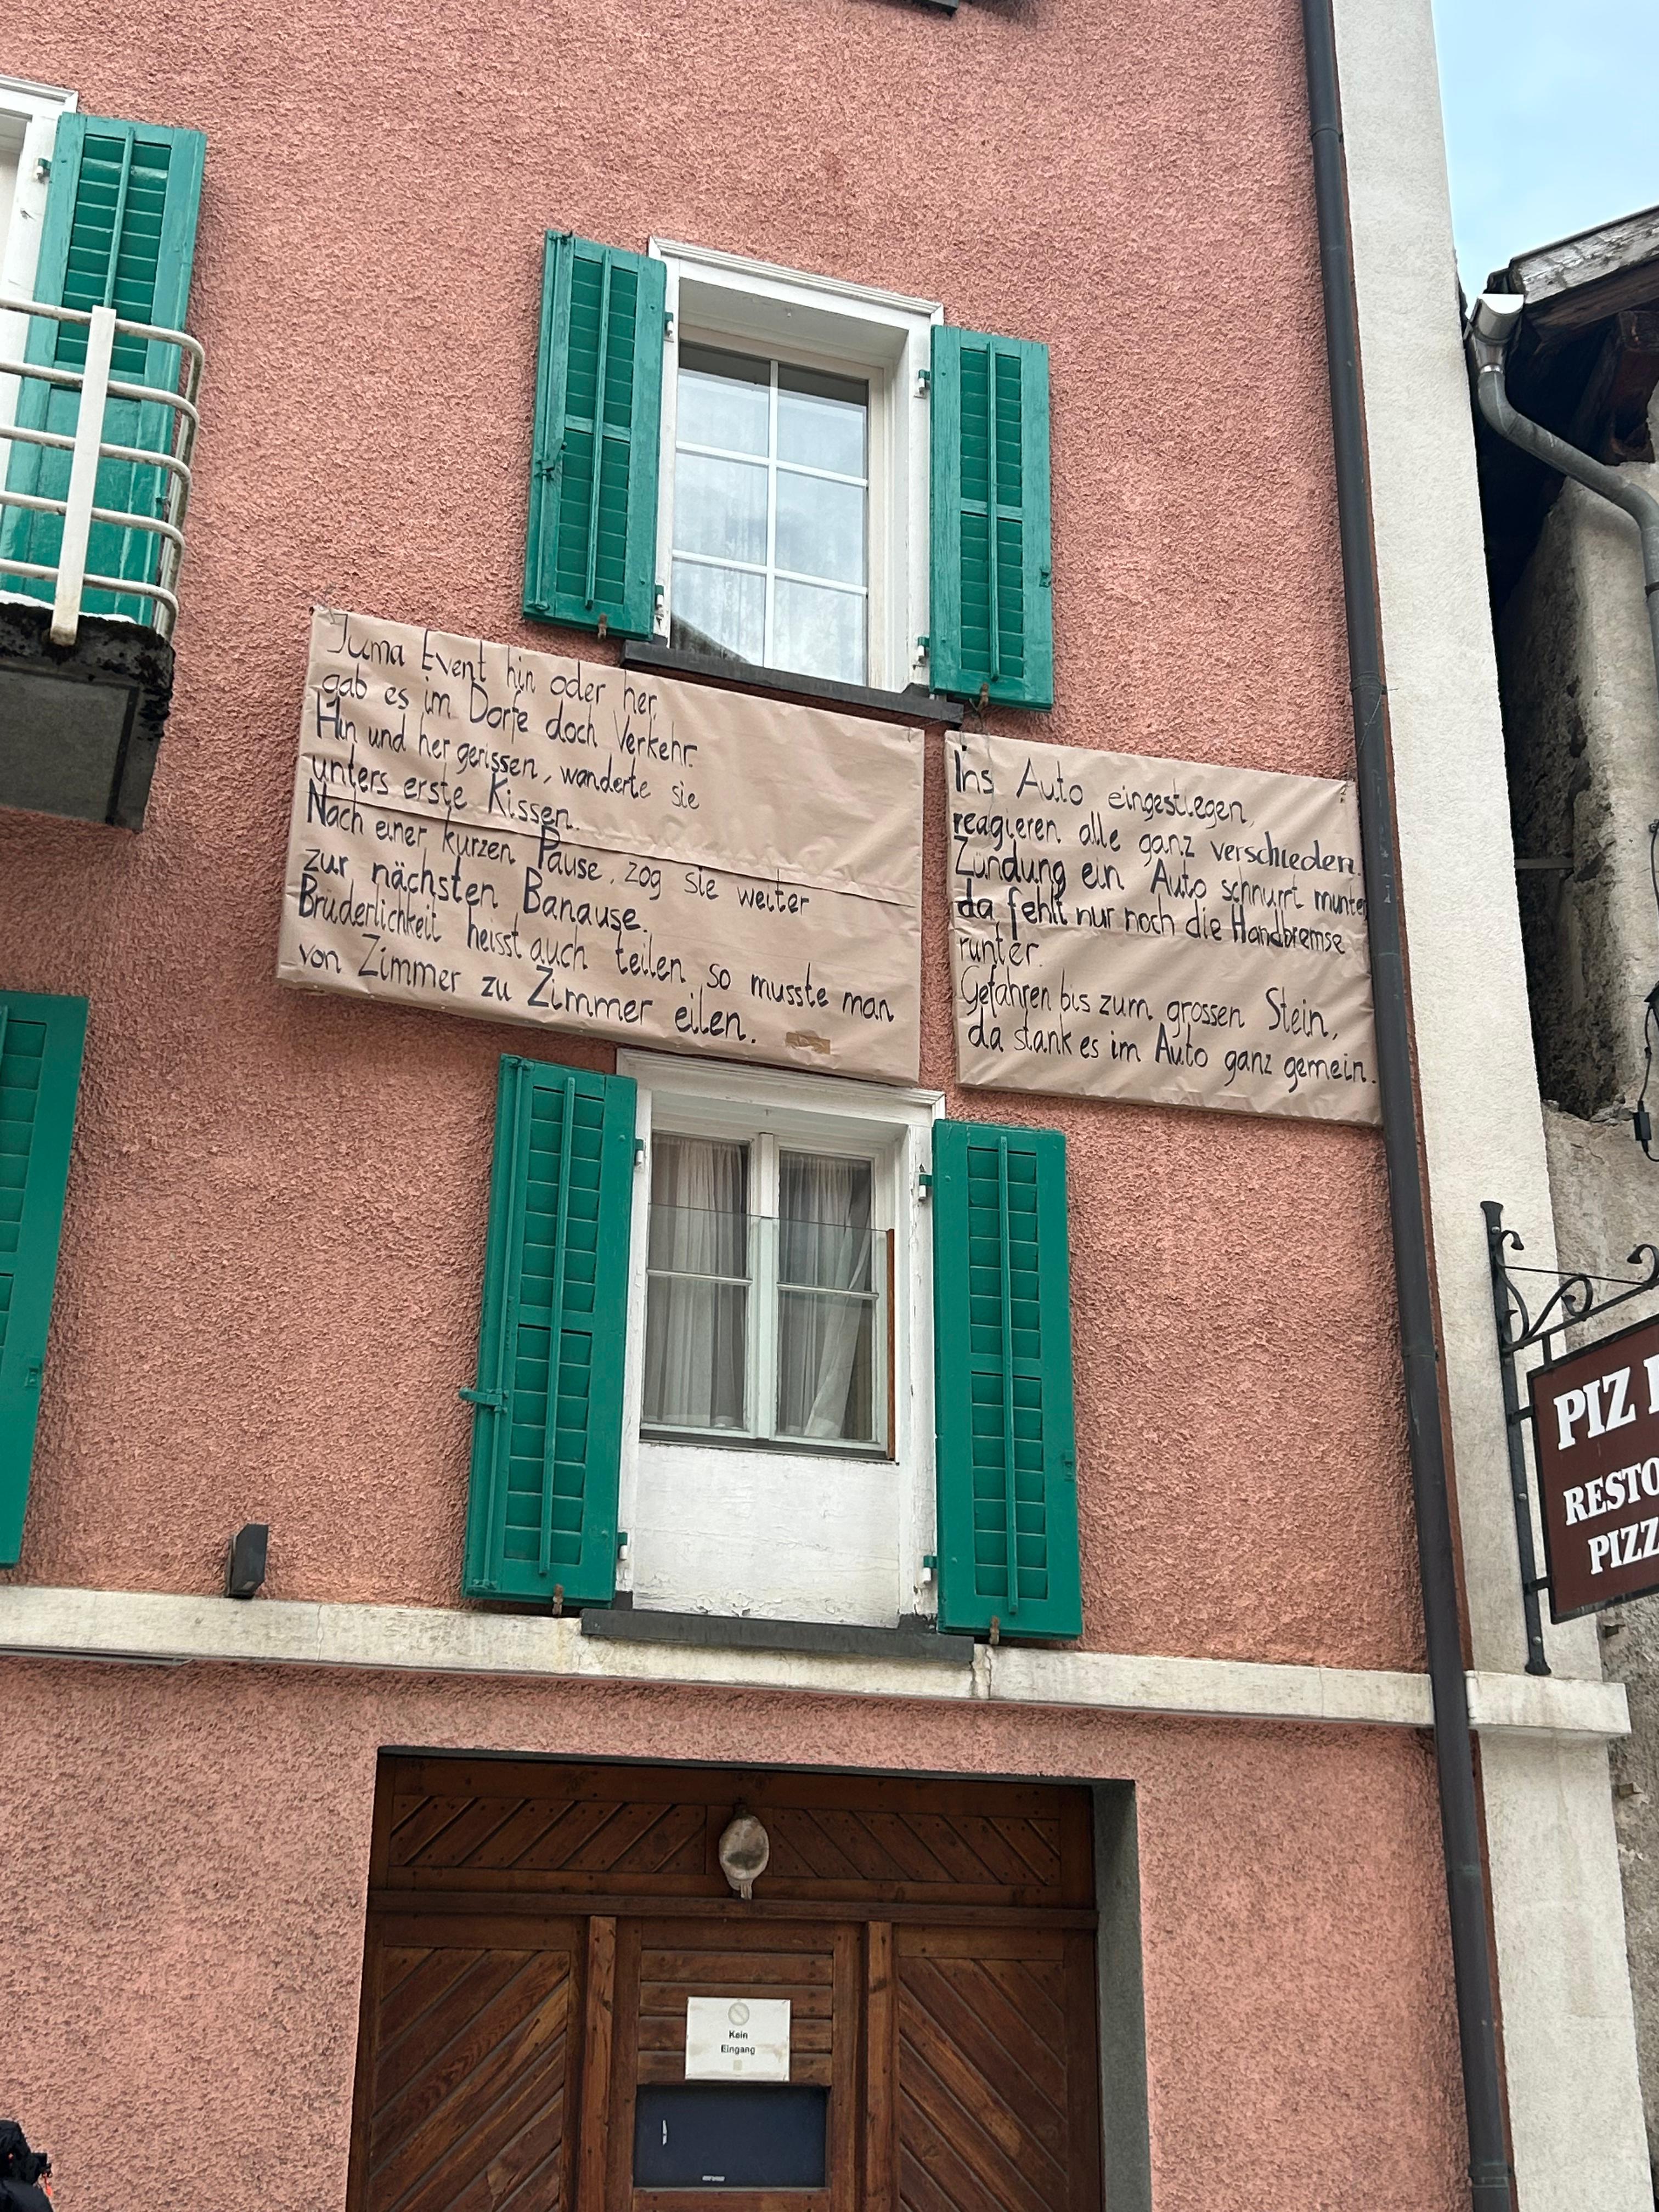 Juma Event hin oder her,
gab es im Dorfe doch Verkehr.
Hin und her gerissen, wanderte sie
unters erste Kissen.
Nach einer kurzen Pause, zog sie weiter
zur nächsten Banause.
Brüderlichkeit heisst auch teilen so musste man
von Zimmer zu Zimmer eilen.
Ins Auto eingestiegen,
reagieren alle ganz verschieden.
Zündung ein Auto schnurrt munter
da fehlt nur noch die Handbremse
runter.
Gefahren bis zum grossen Stein,
da stank es im Auto ganz gemein.
PIZ
RESTO
PIZZ
Kein
Eingang